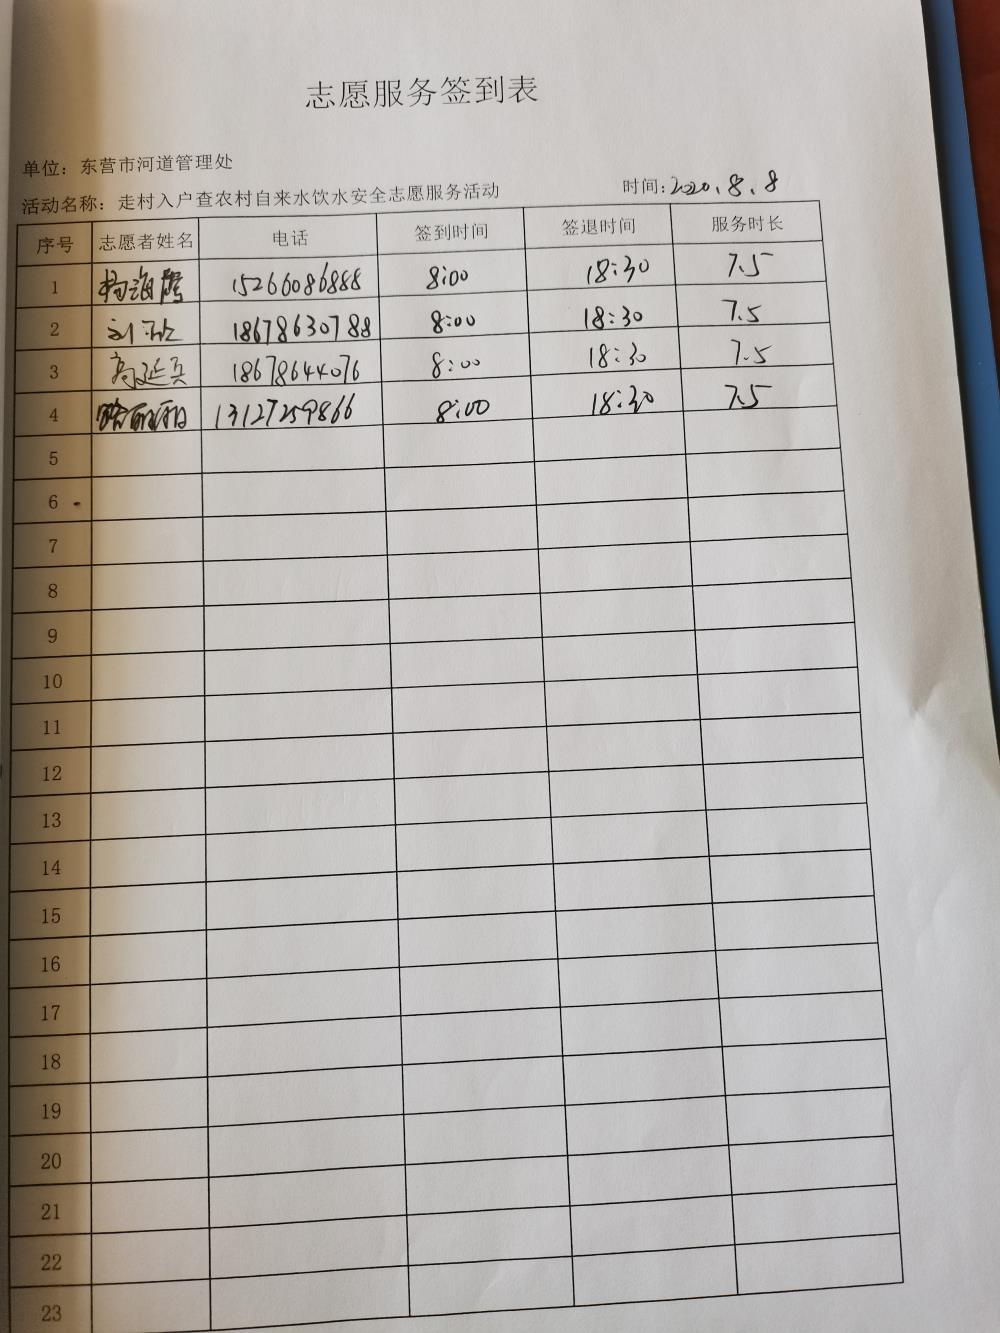 志愿服务签到表
单位：东营市河道管理处
活动名称：走村入户查农村自来水饮水安全志愿服务活动 时间：2020.8.8
序号 志愿者姓名 电话 签到时间 签退时间 服务时长
1 杨海鹰 15266086888 8:00 18:30 7.5
2 刘 18678630788 8:00 18:30 7.5
3 高延兵 18678644076 8:00 18:30 7.5
4 13127259866 8:00 18:30 7.5
5
6
7
8
9
10
11
12
13
14
15
16
17
18
19
20
21
22
23